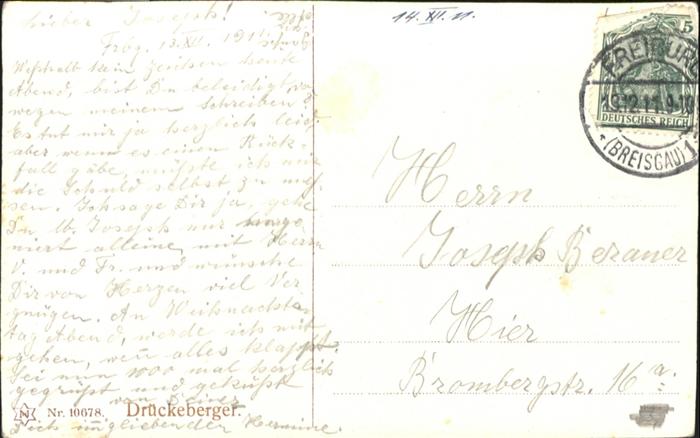 Lieber Joseph!
Frbg. 13.XII. 1911.
Weshalb kein Zeichen heute
Abend, bist Du beleidigt
wegen meinem Schreiben?
Es tut mir ja herzlich leid
aber wenn es einen Rück-
fall gäbe, müßte ich mir
die Schuld selbst zu mes-
sen. Ich sage Dir ja, gehe
Du lb. Joseph nur
niert alleine, mit Herrn
V. und Fr. und wünsche
Dir von Herzen viel Ver
gnügen. An Weihnachten
tag Abend, werde ich mit
gehen, wenn alles klappt.
Sei nun 1000 mal herzlich
gegrüßt und geküßt
von Deiner
Dich inig liebenden Hermine.
Nr. 10678. Drückeberger.
14. XII. 11.
5
FREIBURG
13.12.11.9-10
(BREISGAU) 1
DEUTSCHES REICH
Herrn
Joseph Beraner
Hier
Brombergstr. 16 a.